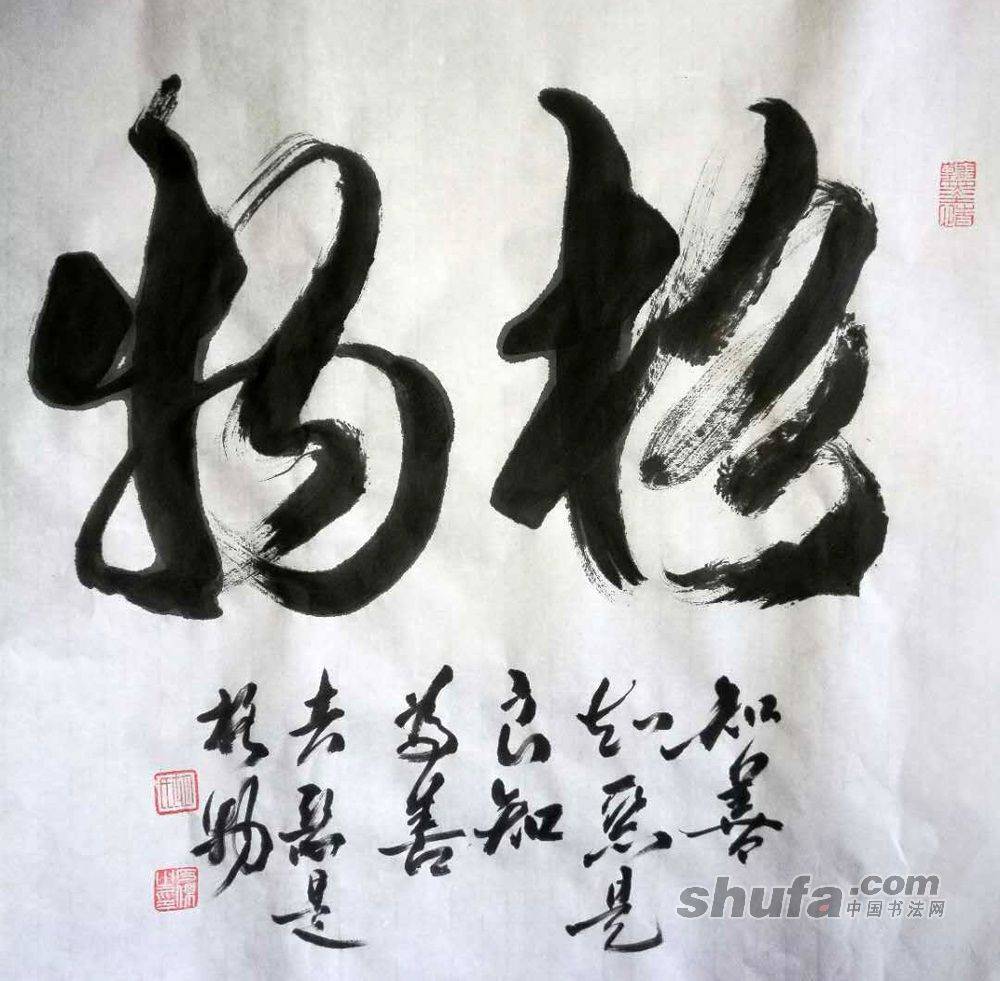 格物
知善
知惡是
良知
為善
去惡是
格物
shufa.com
中国书法网